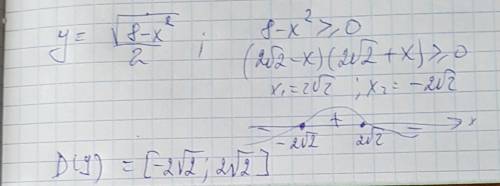 y = √(8-x²)/2 ; 8-x² ≥ 0
(2√2-x)(2√2+x) ≥ 0
x₁=2√2 ; x₂= -2√2
- + - x
-2√2 2√2
D(y) = [-2√2; 2√2]